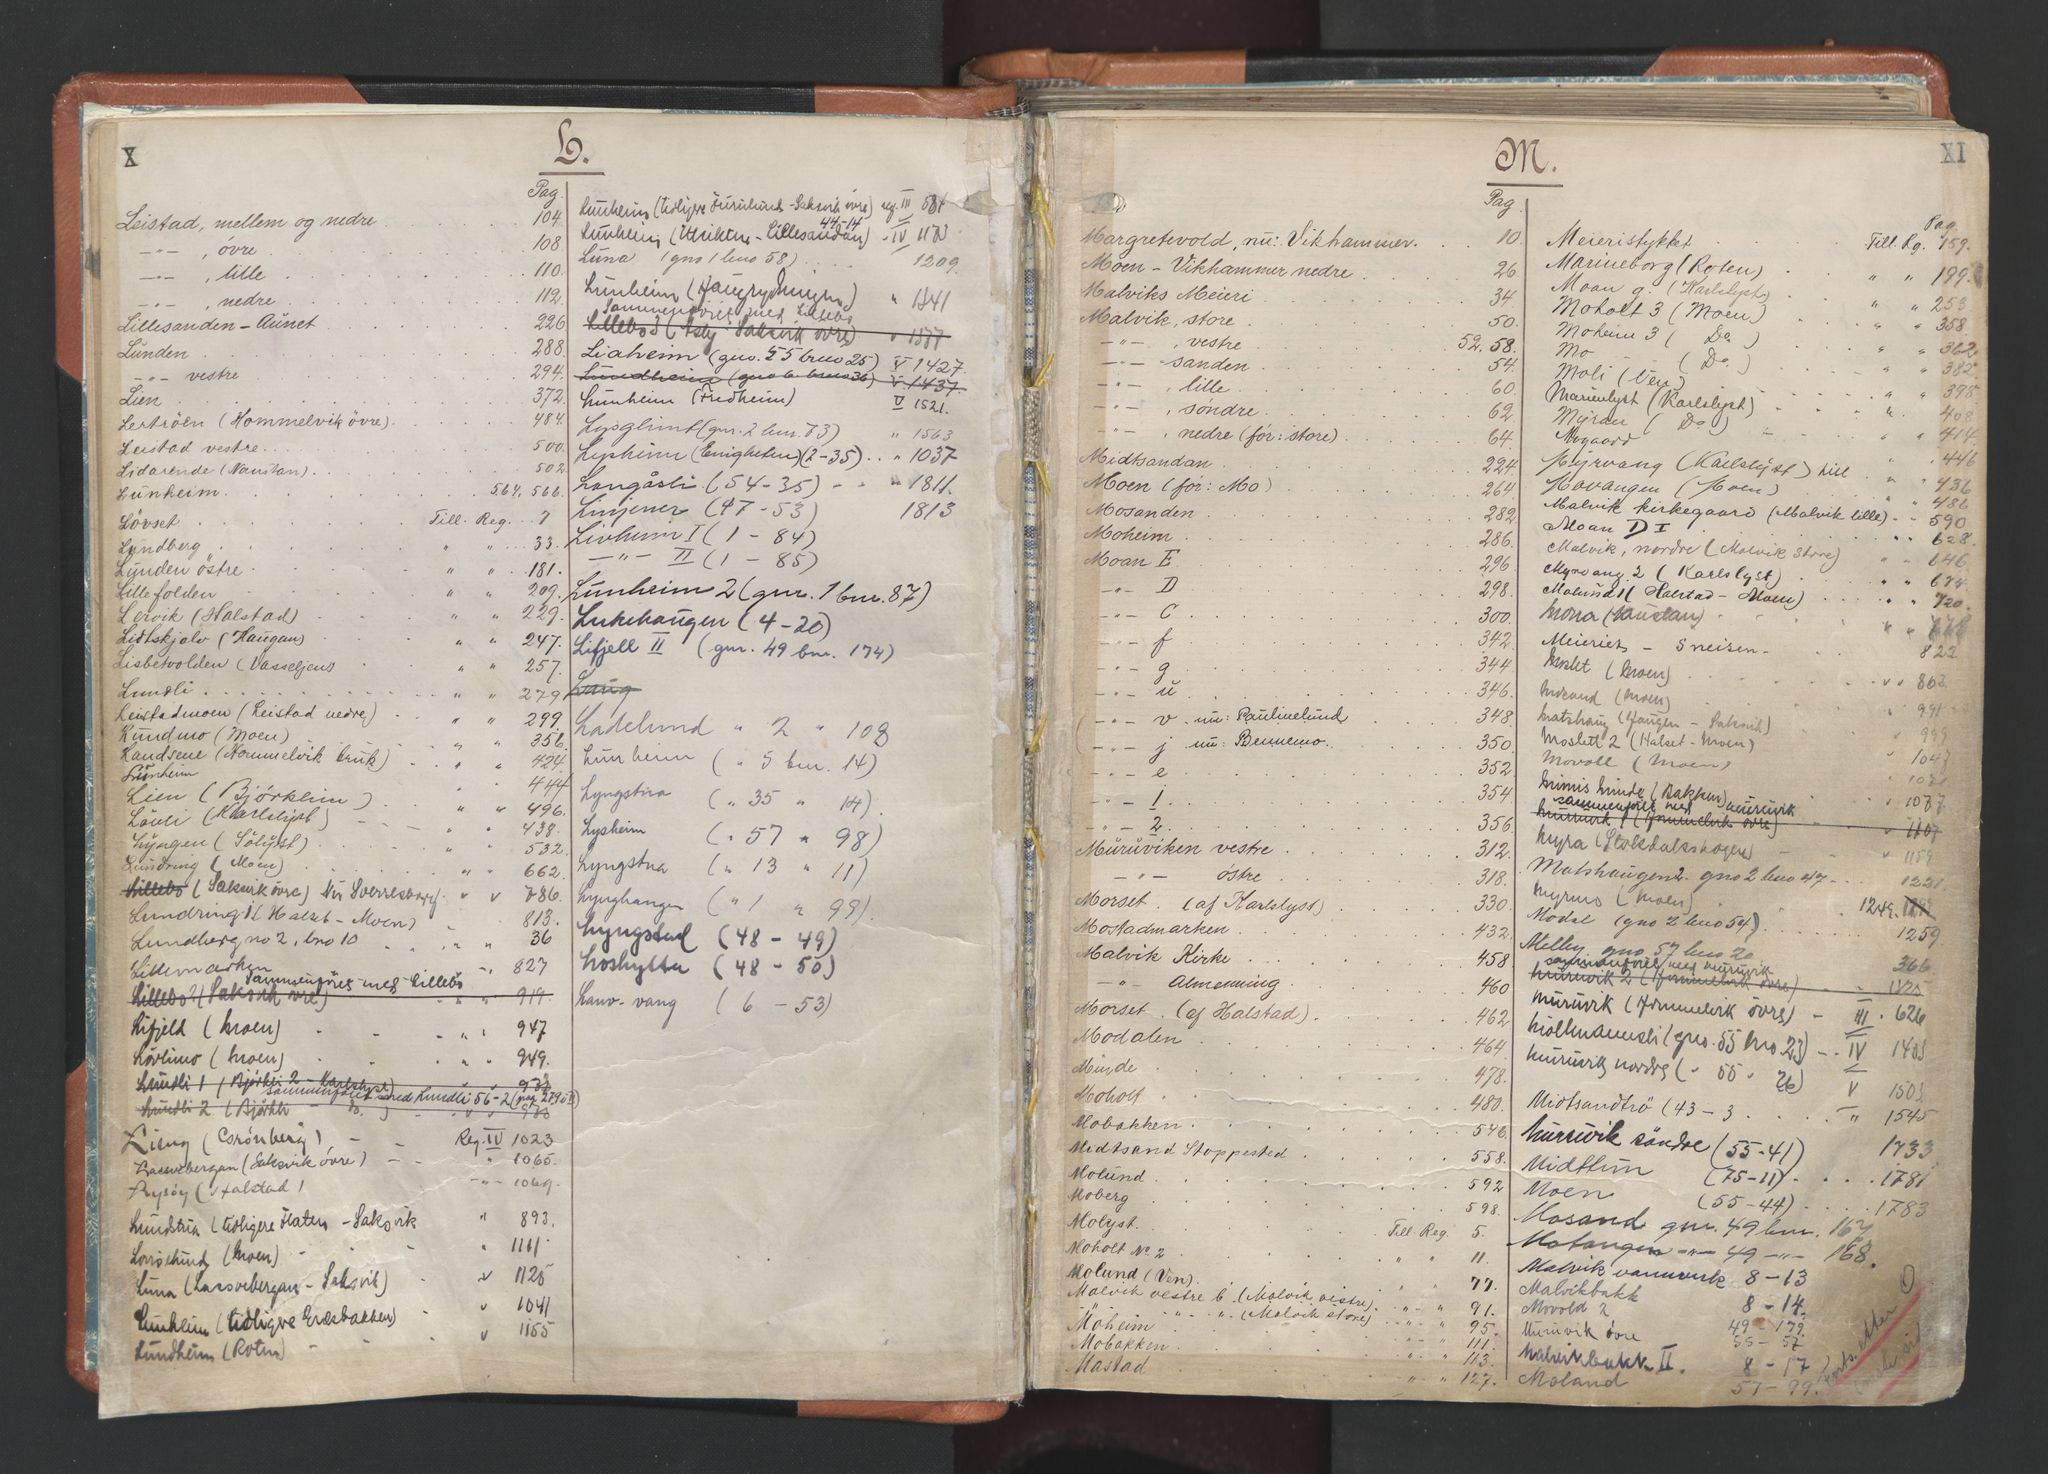 X
L.
Pag.
Leistad, mellem og nedre 104
-"- , övre 108
-"- , lille 110.
-"- , nedre 112.
Lillesanden - Aunet 226
Lunden 288
-"- vestre 294
Lien 372.
Lertröen (Hommelvik övre) 484.
Leistad vestre 500.
Lidarende (Nanstan) 502
Lunheim 564, 566
Lövset Till. Reg. 7
Lundberg " " 33.
Lunden östre " " 181.
Lillefolden 209.
Lervik (Halstad) 229.
Lidskjalv (Haugan) " " 247.
Lisbetvolden (Vasseljens " " 257.
Lundli " " 279
Leistadmoen (Leistad nedre) " " 299.
Lundmo (Moen) 356.
Landsene (Hommelvik bruk) " " 424.
Lunheim 444
Lien (Björklien) 496.
Lovli (Karlslyst) 438.
Lyngen (Solyst) 532
Lundring (Moen) 662.
Lillebo (Saksvik övre) Nu Sverresborg " " 786.
Lundring 1 (Halset - Moen) 813.
Lundberg no 2, bno 10 " " 36
Lillemarken " 827
Sammenföiet med Lillebo
Lillebo 2 (Saksvik övre) 919.
Lifjeld (Moen) " " 947
Lövlimo (Moen) " " 949.
Lundli 1 (Björkli 2 - Karlslyst)
Sammenföiet med Lundli 56-2 (pag 279
Lundli 2 (Björkli
Lieng (Grönberg) Reg. IV 1023
Lassebergan (Saksvik övre) " 1065.
Lysöy (Halstad) -"- 1069.
Lundstua (tidligere Flaten - Saksvik " 893.
(Moen) " 1111
Luna (Lassvebergan - Saksvik) " 1125
Lunheim (tidligere Græsbakken) " 1041
Lundheim (Roten) " 1155
Lunheim (tidligere Furulund - Saksvik övre) reg. III 581
44-14
Lunheim ( - Lillesanden) - IV 1173
Luna (gno 1 bno 58) 1209.
Lunheim (Haugrydningen) " 1341
Sammenföiet med Lillebo
Lillebo 3 ( Saksvik övre) " 1377
Liaheim (gno. 55 bno 25) V 1427.
Lundheim (gno 6 bno 36) V 1437.
Lunheim (Fredheim) V 1521.
Lysglimt (gnr. 2 bnr. 73) " 1563
Lysheim (Enigheten) (2-35) " 1037
Langåsli (54-35) - " " 1811.
Linjener (47-53) 1813
Livheim I (1 - 84)
-"- II (1 - 85)
Lunheim 2 (gnr. 1 bnr. 87)
Lukehaugen (4-20)
Lifjell II (gnr. 49 bnr. 174)
Laug
Ladelund " 2 " 108
Lunheim ( " 5 bnr. 14)
Lyngstua ( " 35 " 14).
Lysheim ( " 57 " 98)
Lyngstua ( " 13 " 11)
Lynghaugen ( " 1 " 99).
Lyngstad (48-49)
Loshytta (48-50)
Lauv-vang (6-53)
XI
M.
Pag.
Margretevold, nu: Vikhammer. 10.
Moen - Vikhammer nedre 26
Malviks Meieri 34.
Malvik, store 50.
-"- , vestre 52. 58.
-"- sanden 54.
-"- , lille 60.
-"- , söndre 62
-"- , nedre (för: store) 64.
Midtsandan 224
Moen (för: Mo) 264.
Mosanden 282.
Moheim 286.
Moan E 296
-"- D 298.
-"- C 300.
-"- f 342
-"- g 344
-"- u 346.
-"- v nu: Paulinelund 348
-"- j nu: Bennemo 350.
-"- e 352.
-"- i 354
-"- 2 356.
Muruviken vestre 312.
-"- östre 318.
Morset. (af Karlslyst) 330
Mostadmarken 432.
Malvik Kirke 458.
-"- Almenning 460
Morset. (af Halstad) 462
Modalen 464.
Minde 478.
Moholt 480.
Mobakken 546.
Midtsand Stoppested 558.
Molund 592
Moberg 598.
Molyst Till Reg. 5.
Moholt No 2 " " 11.
Molund (Ven) " 77.
Malvik vestre b. (Malvik vestre) " " 91.
" " " (Malvik store) " " 95.
Moheim " " 111.
Mobakken " " 113.
Mastad " " 127.
Pag
Meieristykket Till. Rg. 159.
Marineborg (Roten) " " 199.
Moan g. (Karlslyst) " " 253
Moholt 3 (Moen) " " 358.
Moheim 3 ( Do ) " " 362.
Mo ( Do ) " " 382.
Moli (Ven) " " 398
Marienlyst (Karlslyst) " " 408
Myran ( Do ) " " 414
Mogaard 446
Myrvang (Karlslyst) till " 436
Movangen (Moen) " " 486
Malvik kirkegaard (Malvik lille) " 590
Moan D I " " 628.
Malvik, nordre (Malvik store) " " 646
Myrvang 2 (Karlslyst) " " 674
Molund 1 (Halstad - Moen) 720.
Mona (Naustan)
Meieriets - Sneisen 822
Moslet (Moen) " " 863
Morand (Moen) 991
Matshaug (Haugen - Saksvik) 999
Moslett 2 (Halset - Moen) 1043
Movoll (Moen)
Minnis Minde (Bakken) 1077
sammenföiet med Muruvik
Muruvik 1 (Hommelvik övre) 1107
Myra (Stokdalskogen) 1159
Matshaugen 2. gno 2 bno 47 1221.
Myrmo (Moen) 1249.
Modal (gno 2 bno 54) 1259
Melby gno 57 bno 20 366
sammenföiet med Muruvik
Muruvik 2 (Hommelvik övre) 1325
Muruvik (Hommelvik övre) - III. 626
(gno. 55 bno 23) IV 1403
Muruvik nordre ( " 55 " 26) V 1503
Midtsandtrö (43-3 " 1545
Muruvik söndre (55-41) 1733
Midttun (75-11) 1781
Moen (55-44) 1783
Mosand gnr. 49 bnr. 167
Motangen -"- 49 -"- 168.
Malvik vannverk 8-13
Malvikbakk 8-14.
Movold 2 49-179.
Muruvik övre 55-57
Malvikbakk II. 8-17
Moland 57-99.
forts. etter O